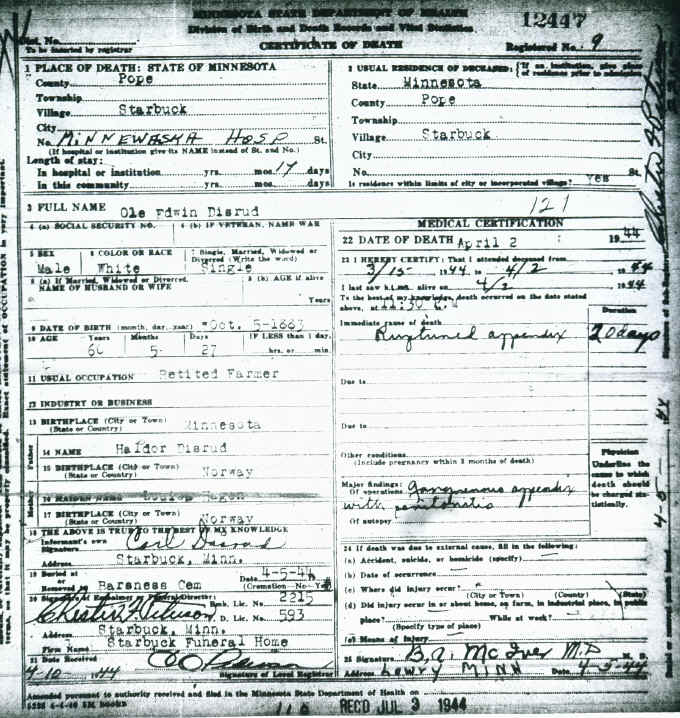 MINNESOTA STATE DEPARTMENT OF HEALTH
Division of Birth and Death Records and Vital Statistics
12447
CERTIFICATE OF DEATH
Dist. No.
To be inserted by registrar
Registered No. 9
1 PLACE OF DEATH: STATE OF MINNESOTA
County Pope
Township
Village Starbuck
City
No. MINNEWASKA HOSP St.
(If hospital or institution give its NAME instead of St. and No.)
Length of stay:
In hospital or institution yrs. mos. 17 days
In this community yrs. mos. days
2 USUAL RESIDENCE OF DECEASED: (If an institution, give place of residence prior to admission
State Minnesota
County Pope
Township
Village Starbuck
City
No. St.
Is residence within limits of city or incorporated village? Yes
3 FULL NAME Ole Edwin Disrud
121
4 (a) SOCIAL SECURITY NO. 4 (b) IF VETERAN, NAME WAR
5 SEX 6 COLOR OR RACE 7 Single, Married, Widowed or Divorced (Write the word)
Male White Single
8 (a) If Married, Widowed or Divorced, NAME OF HUSBAND OR WIFE 8 (b) AGE if alive
Years
9 DATE OF BIRTH (month, day, year) Oct. 5-1883
10 AGE Years Months Days IF LESS than 1 day,
60 5 27 hrs. or min.
11 USUAL OCCUPATION Retited Farmer
12 INDUSTRY OR BUSINESS
13 BIRTHPLACE (City or Town) (State or Country) Minnesota
Father 14 NAME Haldor Disrud
15 BIRTHPLACE (City or Town) (State or Country) Norway
16 MAIDEN NAME Hagen
17 BIRTHPLACE (City or Town) (State or Country) Norway
18 THE ABOVE IS TRUE TO THE BEST OF MY KNOWLEDGE
Informant's own Signature Carl Disrud
Address Starbuck, Minn.
19 Buried at or Removed to Barsness Cem Date 4-5-44
(Cremation No-Yes)
20 Signature of Embalmer or Funeral Director: Emb. Lic. No. 2215
D. Lic. No. 593
Address Starbuck, Minn.
Firm Name Starbuck Funeral Home
21 Date Received
4-10 1944
Signature of Local Registrar
MEDICAL CERTIFICATION
22 DATE OF DEATH April 2 1944
23 I HEREBY CERTIFY: That I attended deceased from
3/15 1944 to 4/2 1944
I last saw him alive on 4/2 1944
To the best of my knowledge, death occurred on the date stated
above, at 11:30 P.M
Duration
Immediate cause of death
Ruptured appendix 20 days
Due to
Due to
Other conditions
(Include pregnancy within 3 months of death)
Physician
Underline the cause to which death should be charged statistically.
Major findings:
Of operations Gangrenous appendix
with peritonitis
Of autopsy
24 If death was due to external cause, fill in the following:
(a) Accident, suicide, or homicide (specify)
(b) Date of occurrence
(c) Where did injury occur?
(City or Town) (County) (State)
(d) Did injury occur in or about home, on farm, in industrial place, in public
place? While at work?
(Specify type of place)
(e) Means of Injury
25 Signature B.A. McIver M.D M. D.
Address Lowry MINN Date 4-5-44
Amended pursuant to authority received and filed in the Minnesota State Department of Health on
REC'D JUL 3 1944